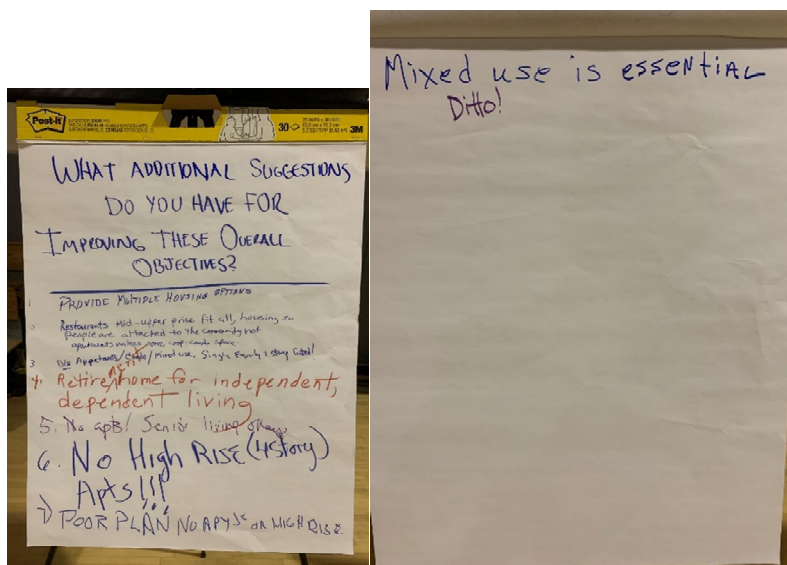 Post-it
30
3M
WHAT ADDITIONAL SUGGESTIONS
DO YOU HAVE FOR
IMPROVING THESE OVERALL
OBJECTIVES?
1 PROVIDE MULTIPLE HOUSING OPTIONS
2 Restaurants Mid-upper price fit all, housing so
People are attached to the community not
apartments
3 No Appartments/Condo/Mixed use. Single Family 1 story Gated!
4. Retirement home for independent,
dependent living
5. No apts! Senior living okay
6. No High RISE (4 story)
Apts!!!
7) POOR PLAN NO APTS OR HIGH RISE
Mixed use is essential
Ditto!